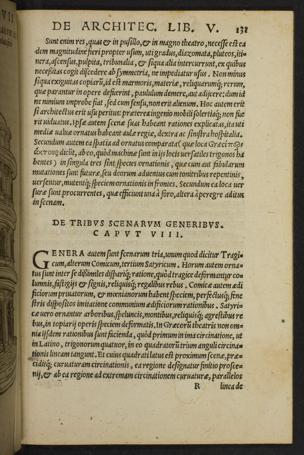 DE ARCHITEC. LIB. V. 131
Sunt enim res, quas & in pusillo, & in magno theatro, necesse est ea
dem magnitudine fieri propter usum, uti gradus, diazomata, pluteos, iti-
nera, ascensus, pulpita, tribunalia, & siqua alia intercurrunt, ex quibus
necessitas cogit discedere ab symmetria, ne impediatur usus. Non minus
siqua exiguitas copiarũ, id est marmoris, materiæ, reliquarumq́; rerum,
quæ parantur in opere defuerint, paululum demere, aut adijcere, dum id
ne nimium improbe fiat, sed cum sensu, non erit alienum. Hoc autem erit
si architectus erit usu peritus: præterea ingenio mobili solertiaq́; non fue
rit uiduatus. Ipsæ autem scenæ suas habeant rationes explicatas, ita uti
mediæ ualuæ ornatus habeant aulæ regiæ, dextra ac sinistra hospitalia.
Secundum autem ea spatia ad ornatus comparata (quæ loca Græci
dicũt, ab eo, quòd machinæ sunt in ijs locis uersatiles trigonos ha
bentes) in singula tres sint species ornationis, quæ cum aut fabularum
mutationes sunt futuræ, seu deorum aduentus cum tonitribus repentinis,
uersentur, mutentq́; speciem ornationis in frontes. Secundum ea loca uer
suræ sunt procurrentes, quæ efficiunt unà à foro, altera à peregre aditus
in scenam.
DE TRIBVS SCENARVM GENERIBVS.
CAPVT VIII.
GENERA autem sunt scenarum tria, unum quod dicitur Tragi-
cum, alterum Comicum, tertium Satyricum. Horum autem orna-
tus sunt inter se dissimiles dispariq́; ratione, quòd tragicæ deformantur co
lumnis, fastigijs & signis, reliquisq́; regalibus rebus. Comicæ autem ædi
ficiorum priuatorum, & mœnianorum habent speciem, perfectusq́; fene
stris dispositos imitatione communium ædificiorum rationibus. Satyri-
cæ uero ornantur arboribus, speluncis, montibus, reliquisq́; agrestibus re
bus, in topiarij operis speciem deformatis. In Græcorũ theatris non om-
nia iisdem rationibus sunt facienda, quòd primum in ima circinatione, ut
in Latino, trigonorum quatuor, in eo quadratorũ trium anguli circina-
tionis lineam tangunt. Et cuius quadrati latus est proximum scenæ, præ-
ciditq́; curuaturam circinationis, ea regione designatur finitio prosce-
nij, & ab ea regione ad extremam circinationem curuaturæ, parallelos
R linea de